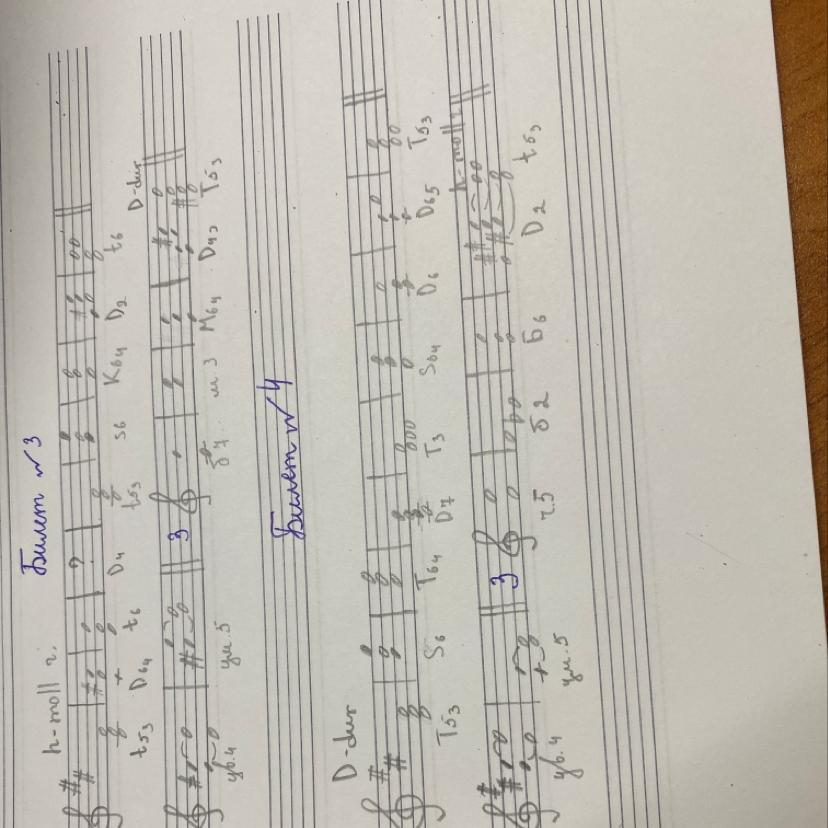 Билет № 3
h-moll г.
t53 D64 t6 D4 ? t53 s6 K64 D2 t6
3 D-dur
ув.4 ум.5 б7 м3 М64 D43 T53
Билет № 4
D-dur
T53 S6 T64 D7 T3 S64 D6 D65 T53
3 h-moll г.
ув.4 ум.5 ч.5 б2 Б6 D2 t53